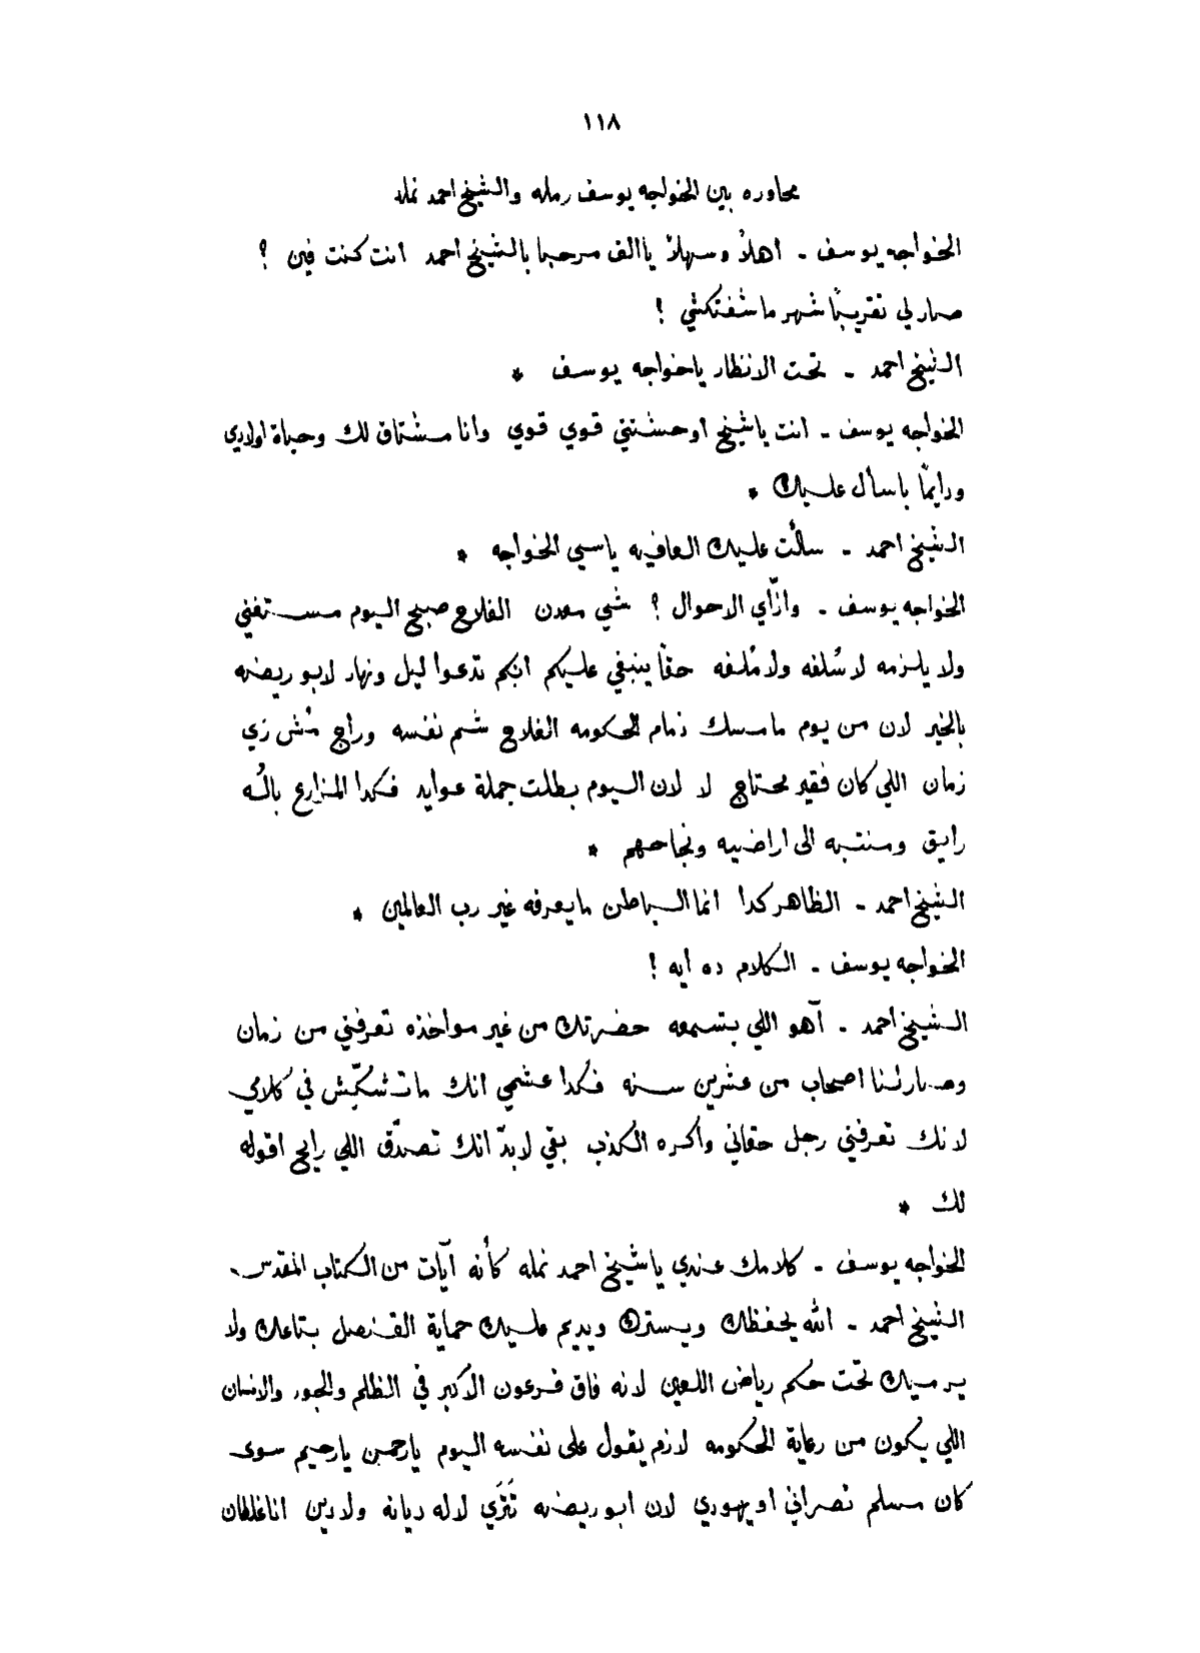 ١١٨
محاوره بين الخواجه يوسف رمله والشيخ احمد نمله
الخواجه يوسف - اهلاً وسهلاً ياالف مرحبا بالشيخ احمد انت كنت فين ؟
صار لي تقريباً شهر ما شفتكشي !
الشيخ احمد - تحت الانظار ياخواجه يوسف *
الخواجه يوسف - انت ياشيخ اوحشتني قوي قوي وانا مشتاق لك وحياة اولادي
ودايماً باسأل عليك *
الشيخ احمد - سألت عليك العافيه ياسي الخواجه *
الخواجه يوسف - وازّاي الاحوال ؟ شي معدن الفلاح صبح اليوم مستغني
ولا يلزمه لا سُلفه ولا مُلفه حقاً ينبغي عليكم انكم تدعوا ليل ونهار لابو ريضه
بالخير لان من يوم ما مسك زمام الحكومه الفلاح شم نفسه وراج مُش زي
زمان اللي كان فقير محتاج لا لان اليوم بطلت جملة عوايد فكدا المزارع بالُه
رايق ومنتبه الى اراضيه ونجاحهم *
الشيخ احمد - الظاهر كدا انما الباطن مايعرفه غير رب العالمين *
الخواجه يوسف - الكلام ده أيه !
الشيخ احمد - آهو اللي بتسمعه حضرتك من غير مواخذه تعرفني من زمان
وصار لنا اصحاب من عشرين سنه فكدا عشمي انك مات شكّش في كلامي
لانك تعرفني رجل حقاني وأكره الكذب بقي لابدّ انك تصدّق اللي رايح اقوله
لك *
الخواجه يوسف - كلامك عندي ياشيخ احمد نمله كأنه آيات من الكتاب المقدس.
الشيخ احمد - الله يحفظك ويسترك ويديم عليك حماية القنصل بتاعك ولا
يرميك تحت حكم رياض اللعين لانه فاق فرعون الأكبر في الظلم والجور والانسان
اللي يكون من رعاية الحكومه لازم يقول على نفسه اليوم يارحمن يارحيم سوى
كان مسلم نصراني او يهودي لان ابو ريضه تَتَري لاله ديانه ولا دين انا غلطان